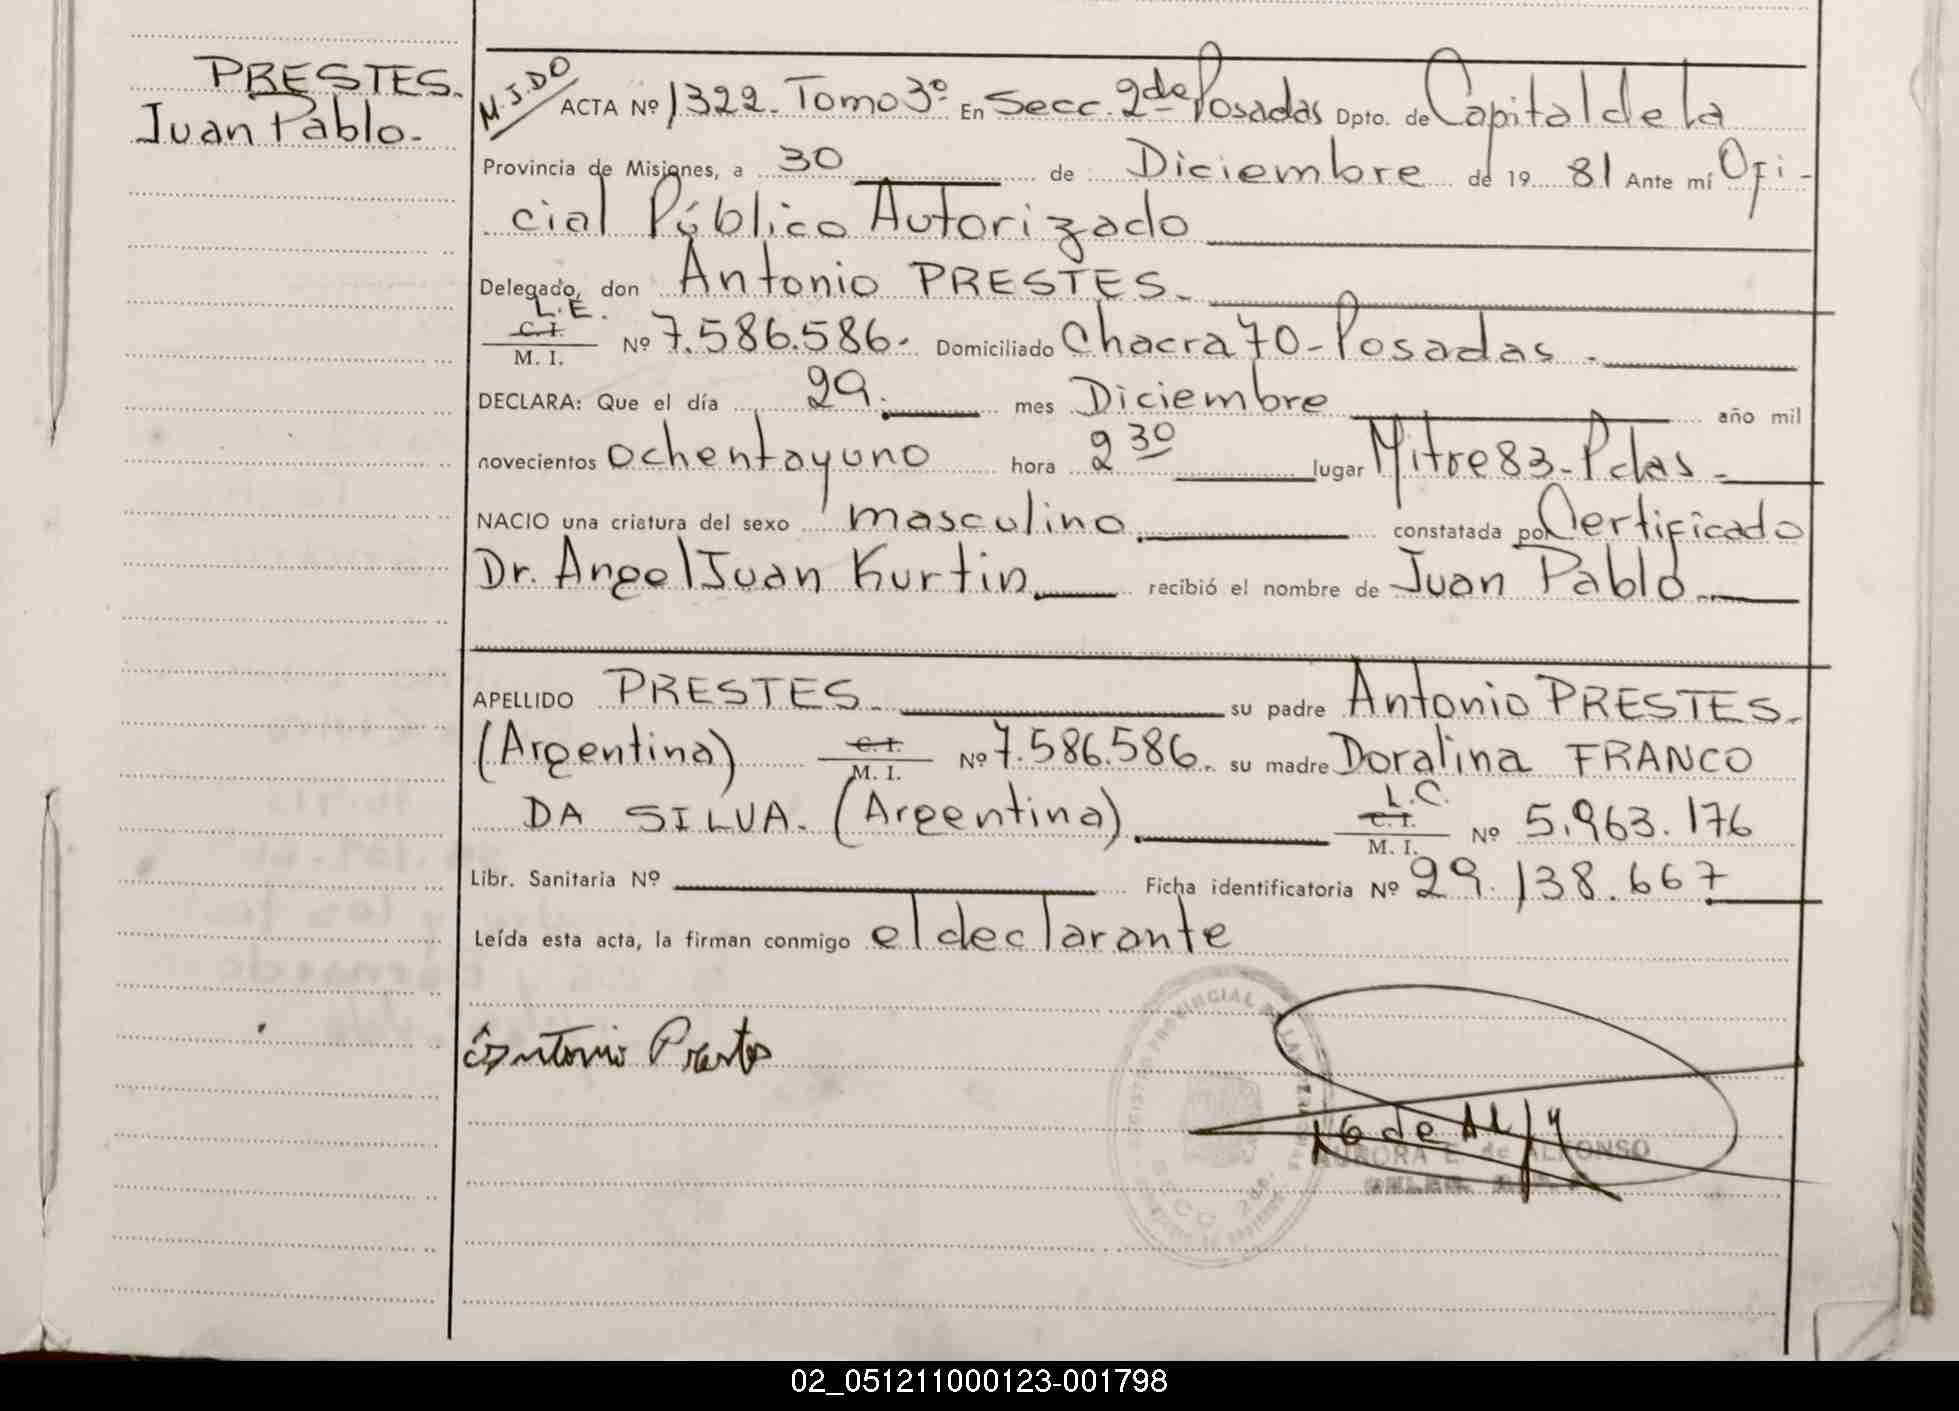 PRESTES.
Juan Pablo.
M.J.DO
ACTA Nº 1322. Tomo 3º En Secc. 2da Posadas Dpto. de Capital de la
Provincia de Misiones, a 30 de Diciembre de 19 81 Ante mí Ofi-
cial Público Autorizado
Delegado, don Antonio PRESTES.
L.E.
C.I.
M. I. Nº 7.586.586. Domiciliado Chacra 70 - Posadas.
DECLARA: Que el día 29. mes Diciembre año mil
novecientos ochentayuno hora 2 30 lugar Mitre 83 - Pdas.
NACIO una criatura del sexo masculino. constatada por Certificado
Dr. Angel Juan Kurtin. recibió el nombre de Juan Pablo.
APELLIDO PRESTES. su padre Antonio PRESTES.
(Argentina) C.I. M. I. Nº 7.586.586. su madre Doralina FRANCO
DA SILVA. (Argentina). L.C. C.I. M. I. Nº 5.963.176
Libr. Sanitaria Nº Ficha identificatoria Nº 29.138.667
Leída esta acta, la firman conmigo el declarante
Antonio Prestes
REGISTRO PROVINCIAL DE LAS PERSONAS
SECC 2da.
AURORA E. de ALFONSO
02_051211000123-001798